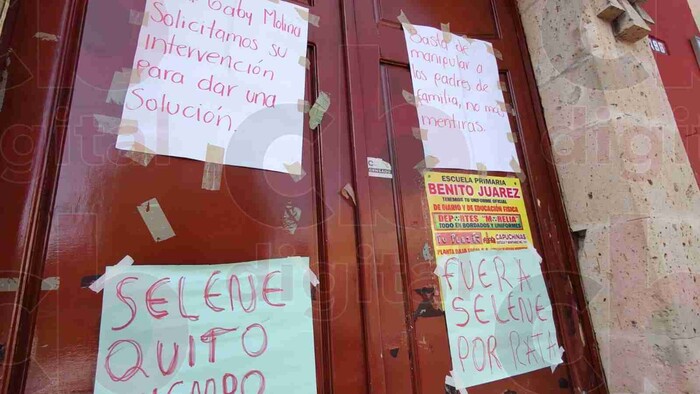 Gaby Molina
Solicitamos su
Intervención
para dar una
Solución.
Basta de
manipular a
los padres de
familia, no más
mentiras.
ESCUELA PRIMARIA
BENITO JUAREZ
TENEMOS TU UNIFORME OFICIAL
DE DIARIO Y DE EDUCACIÓN FISICA
DEPORTES "MORELIA"
TODO EN BORDADOS Y UNIFORMES
CAPUCHINAS
PLANTA BAJA
SELENE
QUITO
FUERA
SELENE
POR RATA
digital
digital
digital